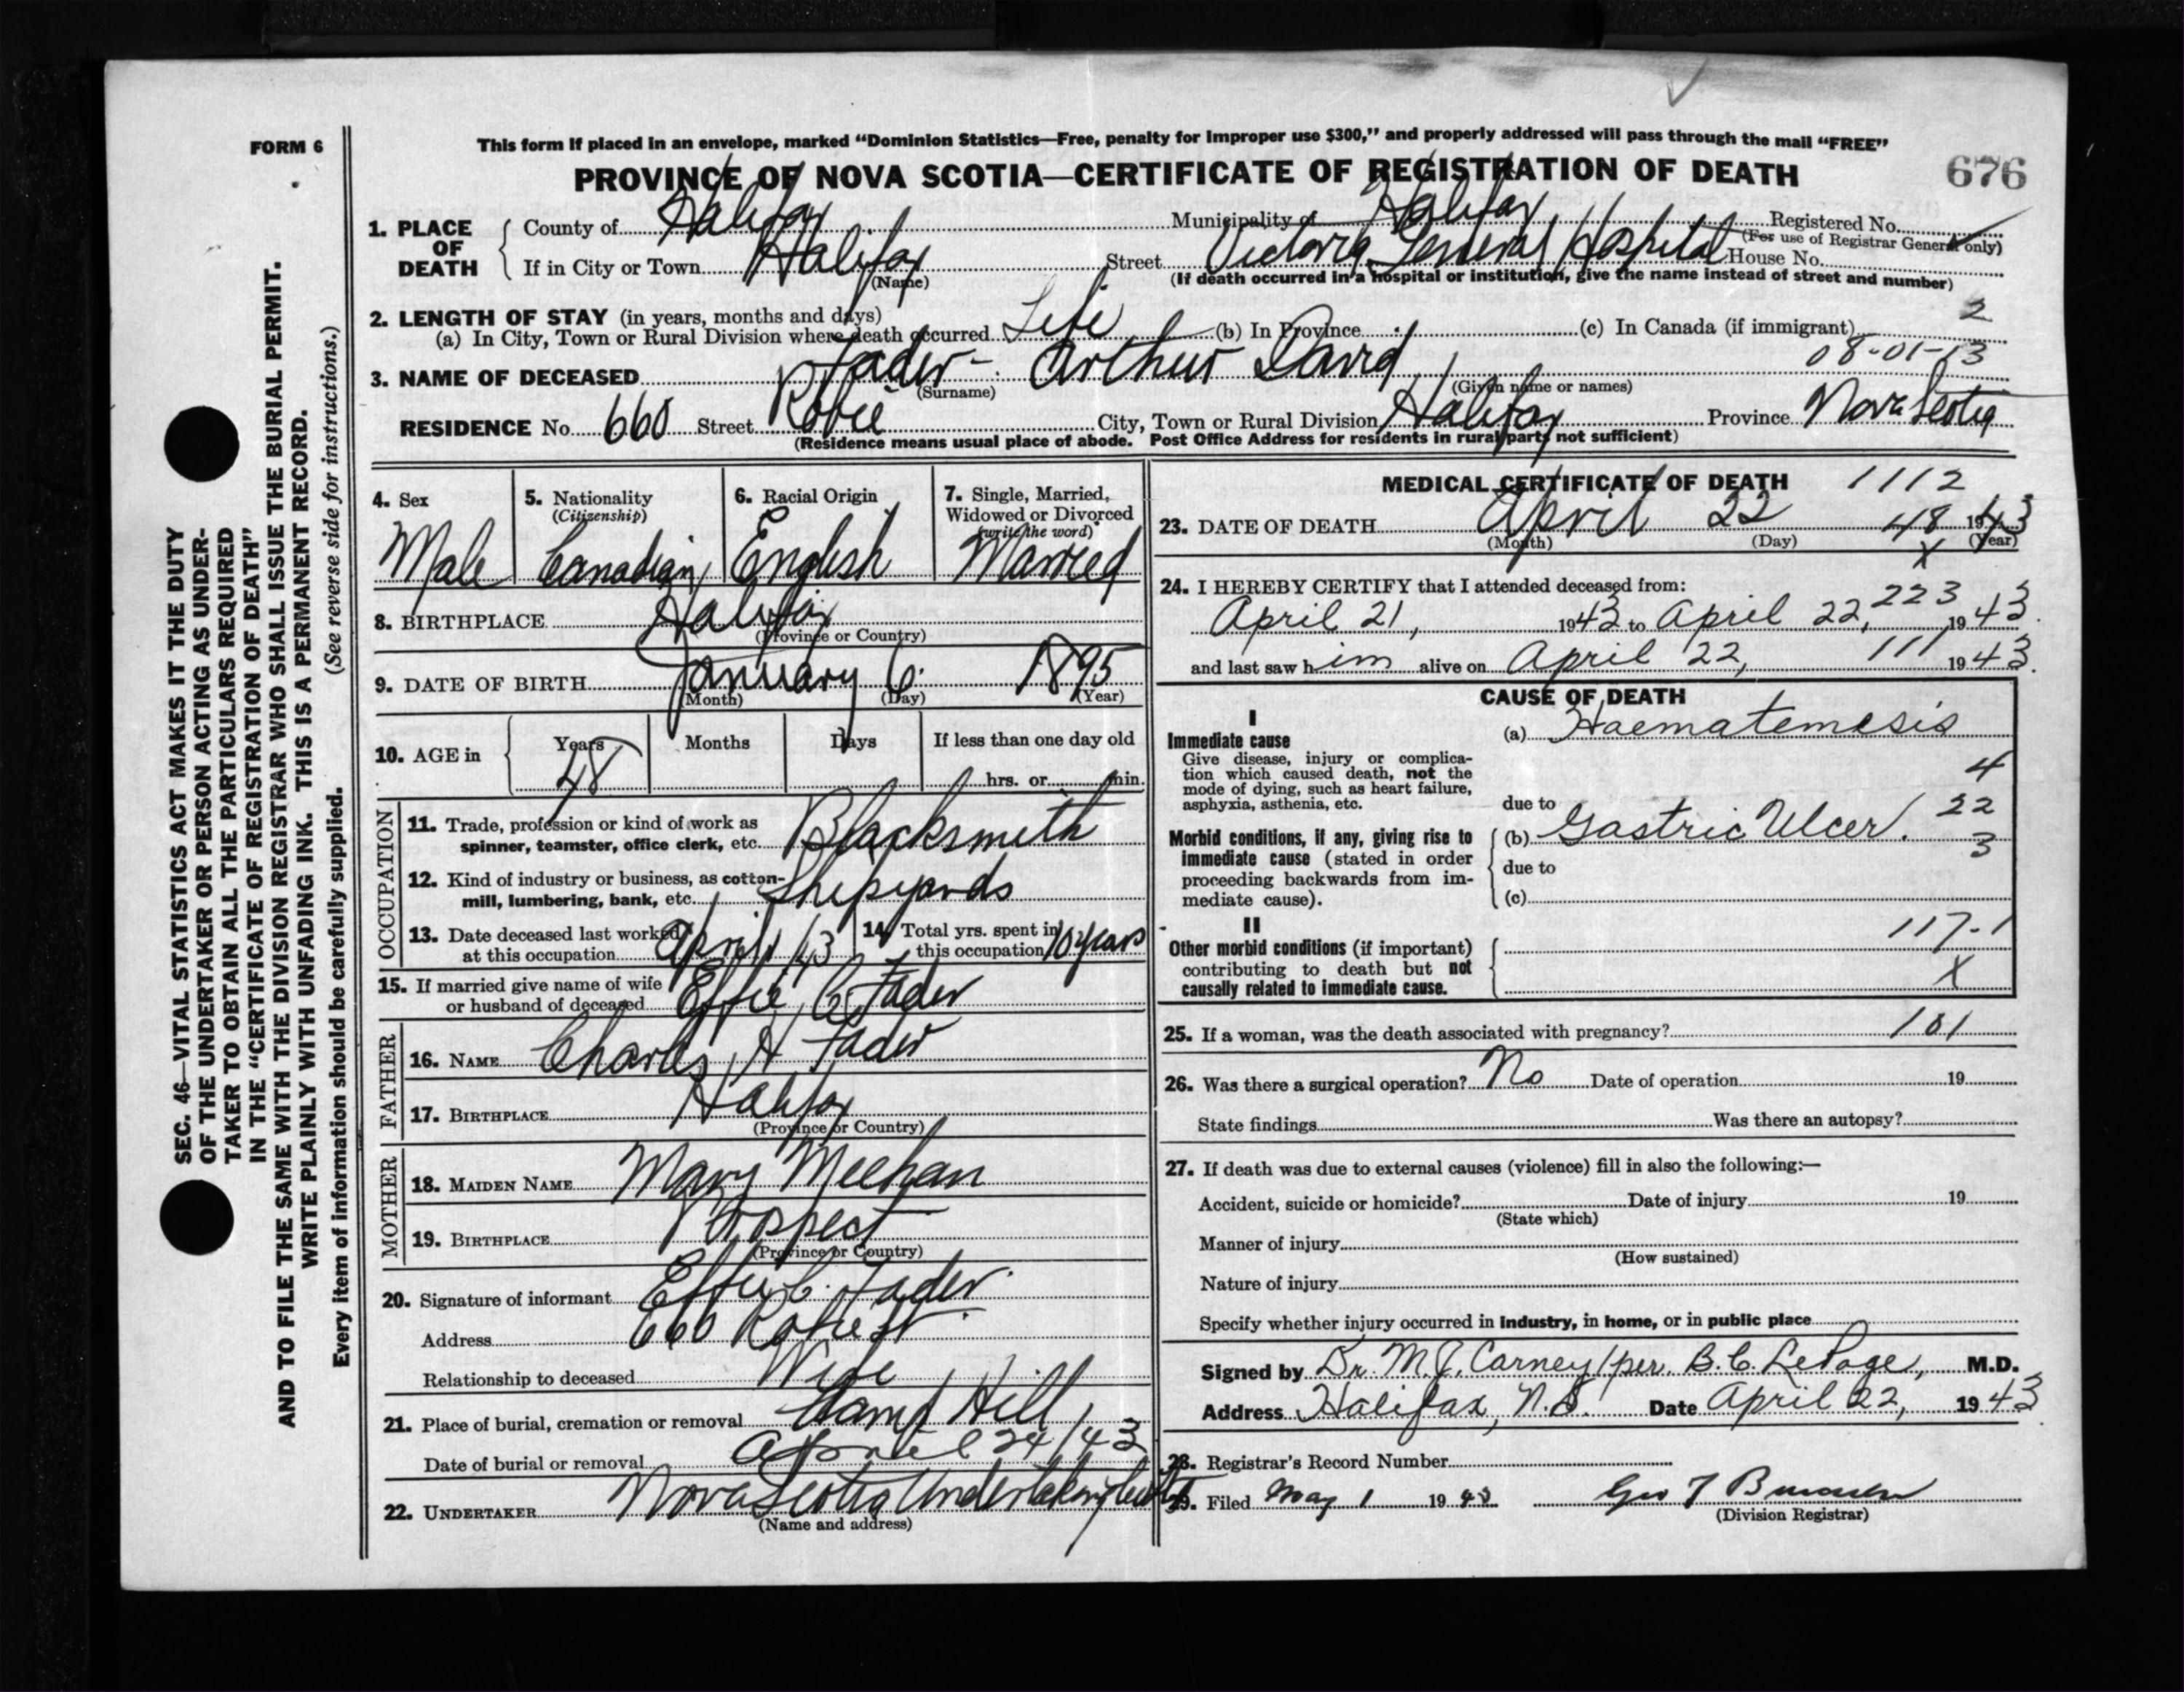 FORM 6
This form if placed in an envelope, marked “Dominion Statistics—Free, penalty for improper use $300,” and properly addressed will pass through the mail “FREE”
PROVINCE OF NOVA SCOTIA—CERTIFICATE OF REGISTRATION OF DEATH
676
1. PLACE OF DEATH
County of Halifax Municipality of Halifax Registered No.
(For use of Registrar General only)
If in City or Town Halifax Street Victoria General Hospital House No.
(Name) (If death occurred in a hospital or institution, give the name instead of street and number)
2. LENGTH OF STAY (in years, months and days) 2
(a) In City, Town or Rural Division where death occurred Life (b) In Province (c) In Canada (if immigrant)
08-01-13
3. NAME OF DECEASED Fader - Arthur David
(Surname) (Given name or names)
RESIDENCE No. 660 Street Robie City, Town or Rural Division Halifax Province Nova Scotia
(Residence means usual place of abode. Post Office Address for residents in rural parts not sufficient)
4. Sex
Male
5. Nationality
(Citizenship)
Canadian
6. Racial Origin
English
7. Single, Married,
Widowed or Divorced
(write the word)
Married
8. BIRTHPLACE Halifax
(Province or Country)
9. DATE OF BIRTH January 6 1895
(Month) (Day) (Year)
10. AGE in Years Months Days If less than one day old
48 hrs. or min.
OCCUPATION
11. Trade, profession or kind of work as
spinner, teamster, office clerk, etc. Blacksmith
12. Kind of industry or business, as cotton-
mill, lumbering, bank, etc. Shipyards
13. Date deceased last worked
at this occupation April /43
14. Total yrs. spent in
this occupation 10 years
15. If married give name of wife
or husband of deceased Effie C Fader
FATHER
16. NAME Charles H Fader
17. BIRTHPLACE Halifax
(Province or Country)
MOTHER
18. MAIDEN NAME Mary Meehan
19. BIRTHPLACE Prospect
(Province or Country)
20. Signature of informant Effie C. Fader
Address 660 Robie St
Relationship to deceased Wife
21. Place of burial, cremation or removal Camp Hill
Date of burial or removal April 24/43
22. UNDERTAKER Nova Scotia Undertaking
(Name and address)
MEDICAL CERTIFICATE OF DEATH 1112
23. DATE OF DEATH April 22 48 1943
(Month) (Day) (Year)
X
24. I HEREBY CERTIFY that I attended deceased from:
223
April 21, 1943 to April 22, 1943
and last saw him alive on April 22, 111 1943.
CAUSE OF DEATH
I
Immediate cause
Give disease, injury or complica-
tion which caused death, not the
mode of dying, such as heart failure,
asphyxia, asthenia, etc.
(a) Haematemesis
4
due to
22
Morbid conditions, if any, giving rise to
immediate cause (stated in order
proceeding backwards from im-
mediate cause).
(b) Gastric Ulcer.
3
due to
(c)
II
Other morbid conditions (if important)
contributing to death but not
causally related to immediate cause.
117-1
X
25. If a woman, was the death associated with pregnancy? 101
26. Was there a surgical operation? No Date of operation 19
State findings Was there an autopsy?
27. If death was due to external causes (violence) fill in also the following:—
Accident, suicide or homicide? Date of injury 19
(State which)
Manner of injury
(How sustained)
Nature of injury
Specify whether injury occurred in industry, in home, or in public place
Signed by Dr. M.J. Carney/per. B.C. LePage, M.D.
Address Halifax, N.S. Date April 22, 1943
28. Registrar's Record Number
29. Filed May 1 1943
(Division Registrar)
SEC. 46—VITAL STATISTICS ACT MAKES IT THE DUTY
OF THE UNDERTAKER OR PERSON ACTING AS UNDER-
TAKER TO OBTAIN ALL THE PARTICULARS REQUIRED
IN THE “CERTIFICATE OF REGISTRATION OF DEATH”
AND TO FILE THE SAME WITH THE DIVISION REGISTRAR WHO SHALL ISSUE THE BURIAL PERMIT.
WRITE PLAINLY WITH UNFADING INK. THIS IS A PERMANENT RECORD.
Every item of information should be carefully supplied. (See reverse side for instructions.)